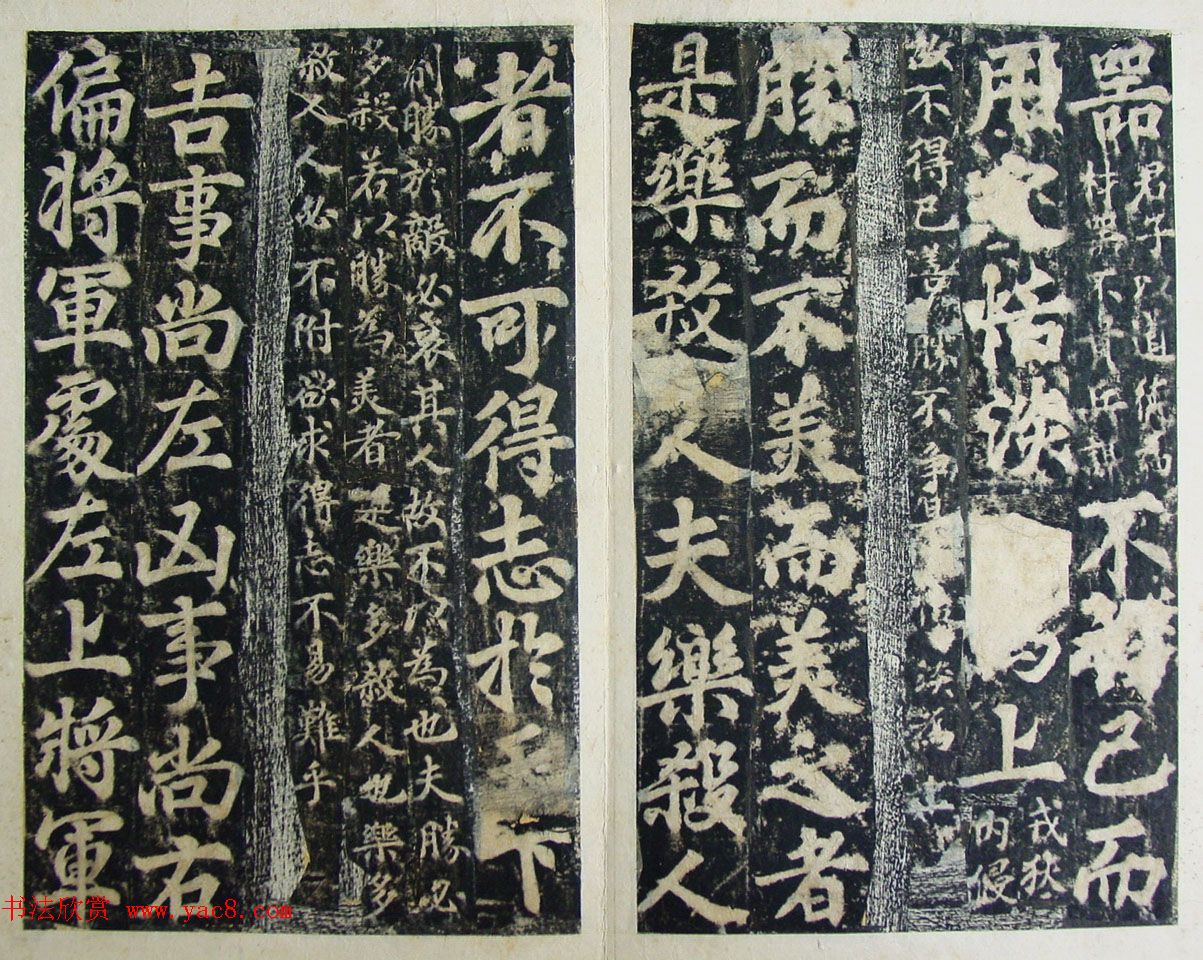 器
君子以道德為
材器不貴兵謀
不得已而
用之恬淡
上
戎狄
內侵
故不得已善勝不爭
勝而不美而美之者
是樂殺人夫樂殺人
者不可得志於天下
制勝於敵必哀其人故不以為也夫勝必
多殺若以勝為美者是樂多殺人也樂多
殺人必不附欲求得志不易難乎
吉事尚左凶事尚右
偏將軍處左上將軍
书法欣赏 www.yac8.com